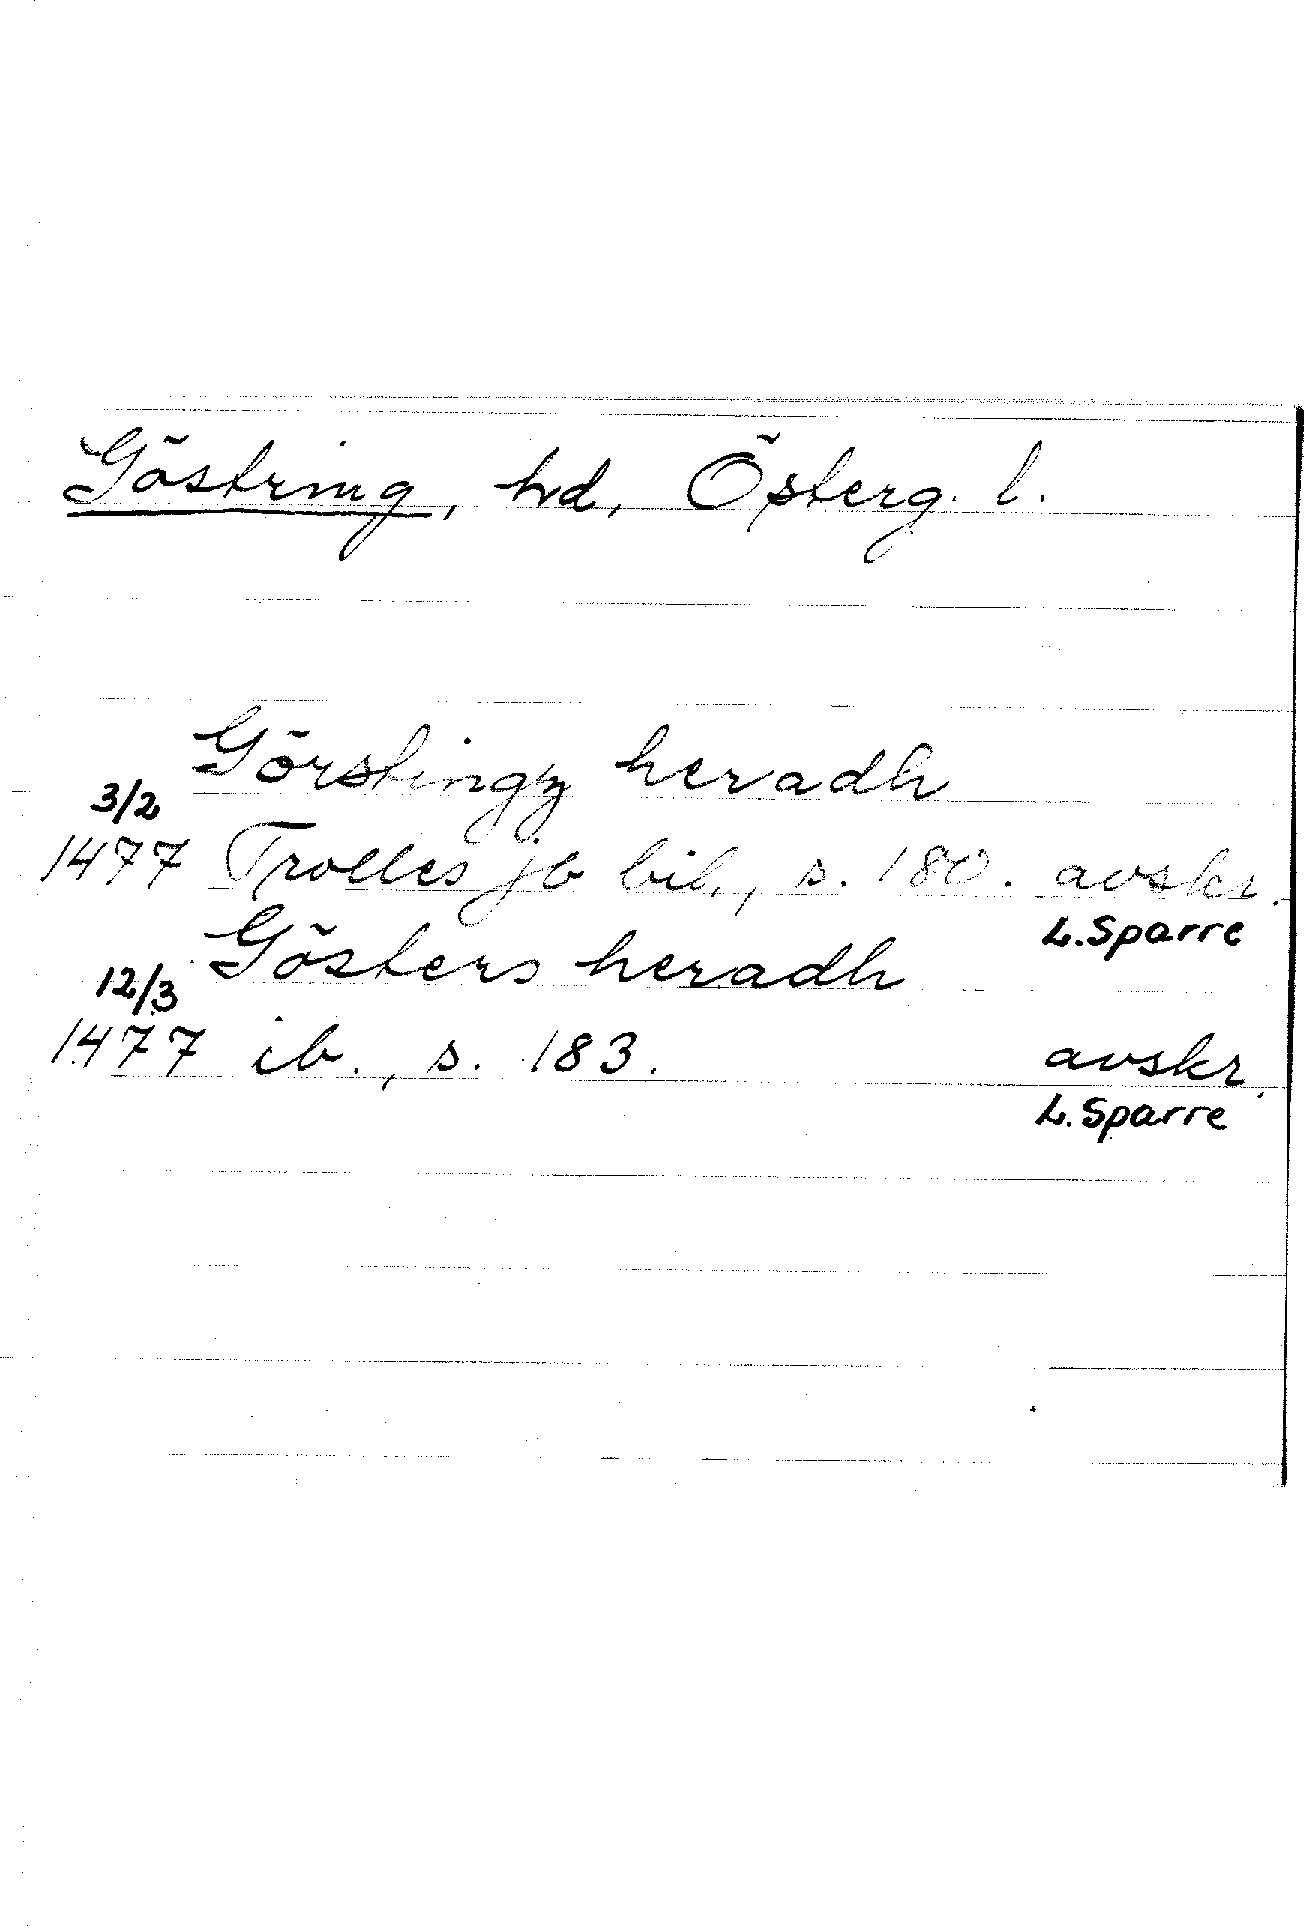 Göstring, hd, Österg. l.
Görstingz heradh
3/2
1477 Trolles jb bil., s. 180. avskr.
L. Sparre
Gösters heradh
12/3
1477 ib., s. 183. avskr.
L. Sparre